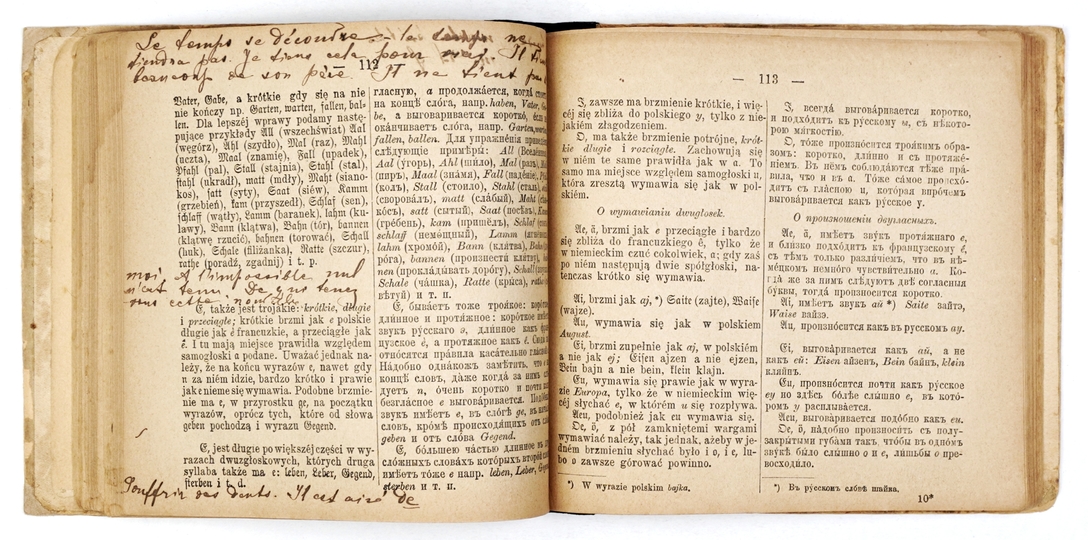 Le temps se découdre - le temps ne
tiendra pas. Je tiens cela pour vrai. Il
beaucoup de son père. Il ne tient pas
112
Vater, Gabe, a krótkie gdy się na nie
nie kończy np. Garten, warten, fallen, bal-
len. Dla lepszéj wprawy podamy nastę-
pujące przykłady All (wszechświat) Aal
(węgórz), Ahl (szydło), Mal (raz), Mahl
(uczta), Maal (znamię), Fall (upadek),
Pfahl (pal), Stall (stajnia), Stahl (stal),
stahl (ukradł), matt (mdły), Maht (siano-
kos), satt (syty), Saat (siéw), Kamm
(grzebień), kam (przyszedł), Schlaf (sen),
schlaff (wątły), Lamm (baranek), lahm (ku-
lawy), Bann (klątwa), Bahn (tór), bannen
(klątwę rzucić), bahnen (torować), Schall
(huk), Schale (filiżanka), Ratte (szczur),
rathe (poradź, zgadnij) i t. p.
moi. A l'impossible nul
n'est tenu.
E, także jest trojakie: krótkie, długie
i przeciągłe; krótkie brzmi jak e polskie
długie jak é francuzkie, a przeciągłe jak
ê. I tu mają miejsce prawidła względem
samogłoski a podane. Uważać jednak na-
leży, że na końcu wyrazów e, nawet gdy
n za niém idzie, bardzo krótko i prawie
jak nieme się wymawia. Podobne brzmie-
nie ma e, w przyrostku ge, na początku
wyrazów, oprócz tych, które od słowa
geben pochodzą i wyrazu Gegend.
E, jest długie po większéj części w wy-
razach dwuzgłoskowych, których druga
syllaba także ma e: leben, Leber, Gegend,
sterben i t. d.
Souffrir des dents. Il est aisé de
гласную, а продолжается, когда
на концѣ слóга, напр. haben, Vater,
be, а выговаривается коротко, если
окáнчиваетъ слóга, напр. Garten,
fallen, ballen. Для упражненія
слѣдующіе примѣры: All
Aal (ýгорь), Ahl (шило), Mal
(пиръ), Maal (знáмя), Fall
(колъ), Stall (стоило), Stahl
(своровáлъ), matt (слáбый), Mahd
косъ), satt (сытый), Saat (посѣвъ),
(грéбень), kam (пришёлъ), Schlaf
schlaff (немóщный), Lamm
lahm (хромóй), Bann (клятва)
рóга), bannen (произнести клятву),
nen (проклáдывать дорóгу), Schall
Schale (чáшка), Ratte (крыса),
вѣтуй) и т. п.
E, бывáетъ тоже троякое:
длинное и протяжное: корóткое
звуку рýсскаго э, длинное какъ
цузское é, а протяжное какъ ê.
относятся прáвила касáтельно
Нáдобно однáкожъ замѣтить, что
концѣ словъ, дáже когдá за нимъ
дуетъ n, óчень коротко и почти
безглáсное e выговáривается.
звукъ имѣетъ e, въ слóгѣ ge, въ
словъ, крóмѣ происходящихъ отъ
geben и отъ слóва Gegend.
E, бóльшею чáстью длинное въ
слóжныхъ словáхъ которыхъ вторóй
имѣетъ тóже e напр. leben, Leber,
sterben и т. п.
— 113 —
I, zawsze ma brzmienie krótkie, i wię-
céj się zbliża do polskiego y, tylko z nie-
jakiém złagodzeniem.
O, ma także brzmienie potrójne, krót-
kie długie i rozciągłe. Zachowują się
w niém te same prawidła jak w a. To
samo ma miejsce względem samogłoski u,
która zresztą wymawia się jak w pol-
skiém.
O wymawianiu dwugłosek.
Ae, ä, brzmi jak e przeciągłe i bardzo
się zbliża do francuzkiego ê, tylko że
w niemieckim czuć cokolwiek, a; gdy zaś
po niém następują dwie spółgłoski, na-
tenczas krótko się wymawia.
Ai, brzmi jak aj,*) Saite (zajte), Waise
(wajze).
Au, wymawia się jak w polskiem
August.
Ei, brzmi zupełnie jak aj, w polskiém
a nie jak ej; Eisen ajzen a nie ejzen,
Bein bajn a nie bein, klein klajn.
Eu, wymawia się prawie jak w wyra-
zie Europa, tylko że w niemieckim wię-
céj słychać e, w którém u się rozpływa.
Aeu, podobniéj jak eu wymawia się.
Oe, ö, z pół zamkniętemi wargami
wymawiać należy, tak jednak, ażeby w je-
dném brzmieniu słychać było i o, i e, lu-
bo o zawsze górować powinno.
*) W wyrazie polskim bajka.
I, всегдá выговáривается коротко,
и подхóдитъ къ рýсскому ы, съ нѣкотó-
рою мягкостію.
O, тóже произнóсится троякимъ обра-
зомъ: коротко, длинно и съ протяжé-
ніемъ. Въ нёмъ соблюдáются тѣже прá-
вила, что и въ a. Тóже сáмое происхó-
дитъ съ глáсною u, которая впрóчемъ
выговáривается какъ рýсское у.
О произношеніи двугласныхъ.
Ae, ä, имѣетъ звукъ протяжнаго e,
и близко подхóдитъ къ французскому ê,
съ тѣмъ только различіемъ, что въ нѣ-
мéцкомъ немного чувствительно a. Ко-
гдá же за нимъ слѣдуютъ двѣ согласныя
бýквы, тогдá произнóсится коротко.
Ai, имѣетъ звукъ ай *) Saite зайтэ,
Waise вайзэ.
Au, произнóсится какъ въ русскомъ ау.
Ei, выговáривается какъ ай, а не
какъ ей: Eisen айзенъ, Bein байнъ, klein
кляйнъ.
Eu, произнóсится почти какъ рýсское
еу но здѣсь бóлѣе слышно е, въ котó-
ромъ у расплывáется.
Aeu, выговáривается подóбно какъ eu.
Oe, ö, нáдобно произносить съ полу-
закрытыми губáми такъ, чтóбы въ однóмъ
звукѣ было слышно о и е, лишьбы о пре-
восходило.
*) Въ рýсскомъ слóвѣ шайка.
10*